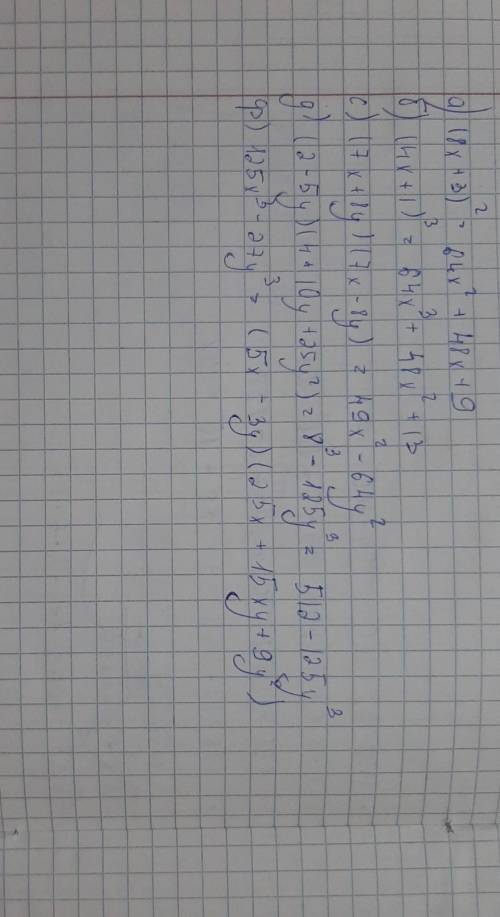 а) (8x+3)² = 64x² + 48x + 9
б) (4x+1)³ = 64x³ + 48x² + 13
с) (7x+8y)(7x-8y) = 49x² - 64y²
д) (2-5y)(4+10y+25y²) = 8³ - 125y³ = 512 - 125y³
ф) 125x³ - 27y³ = (5x - 3y)(25x + 15xy + 9y²)